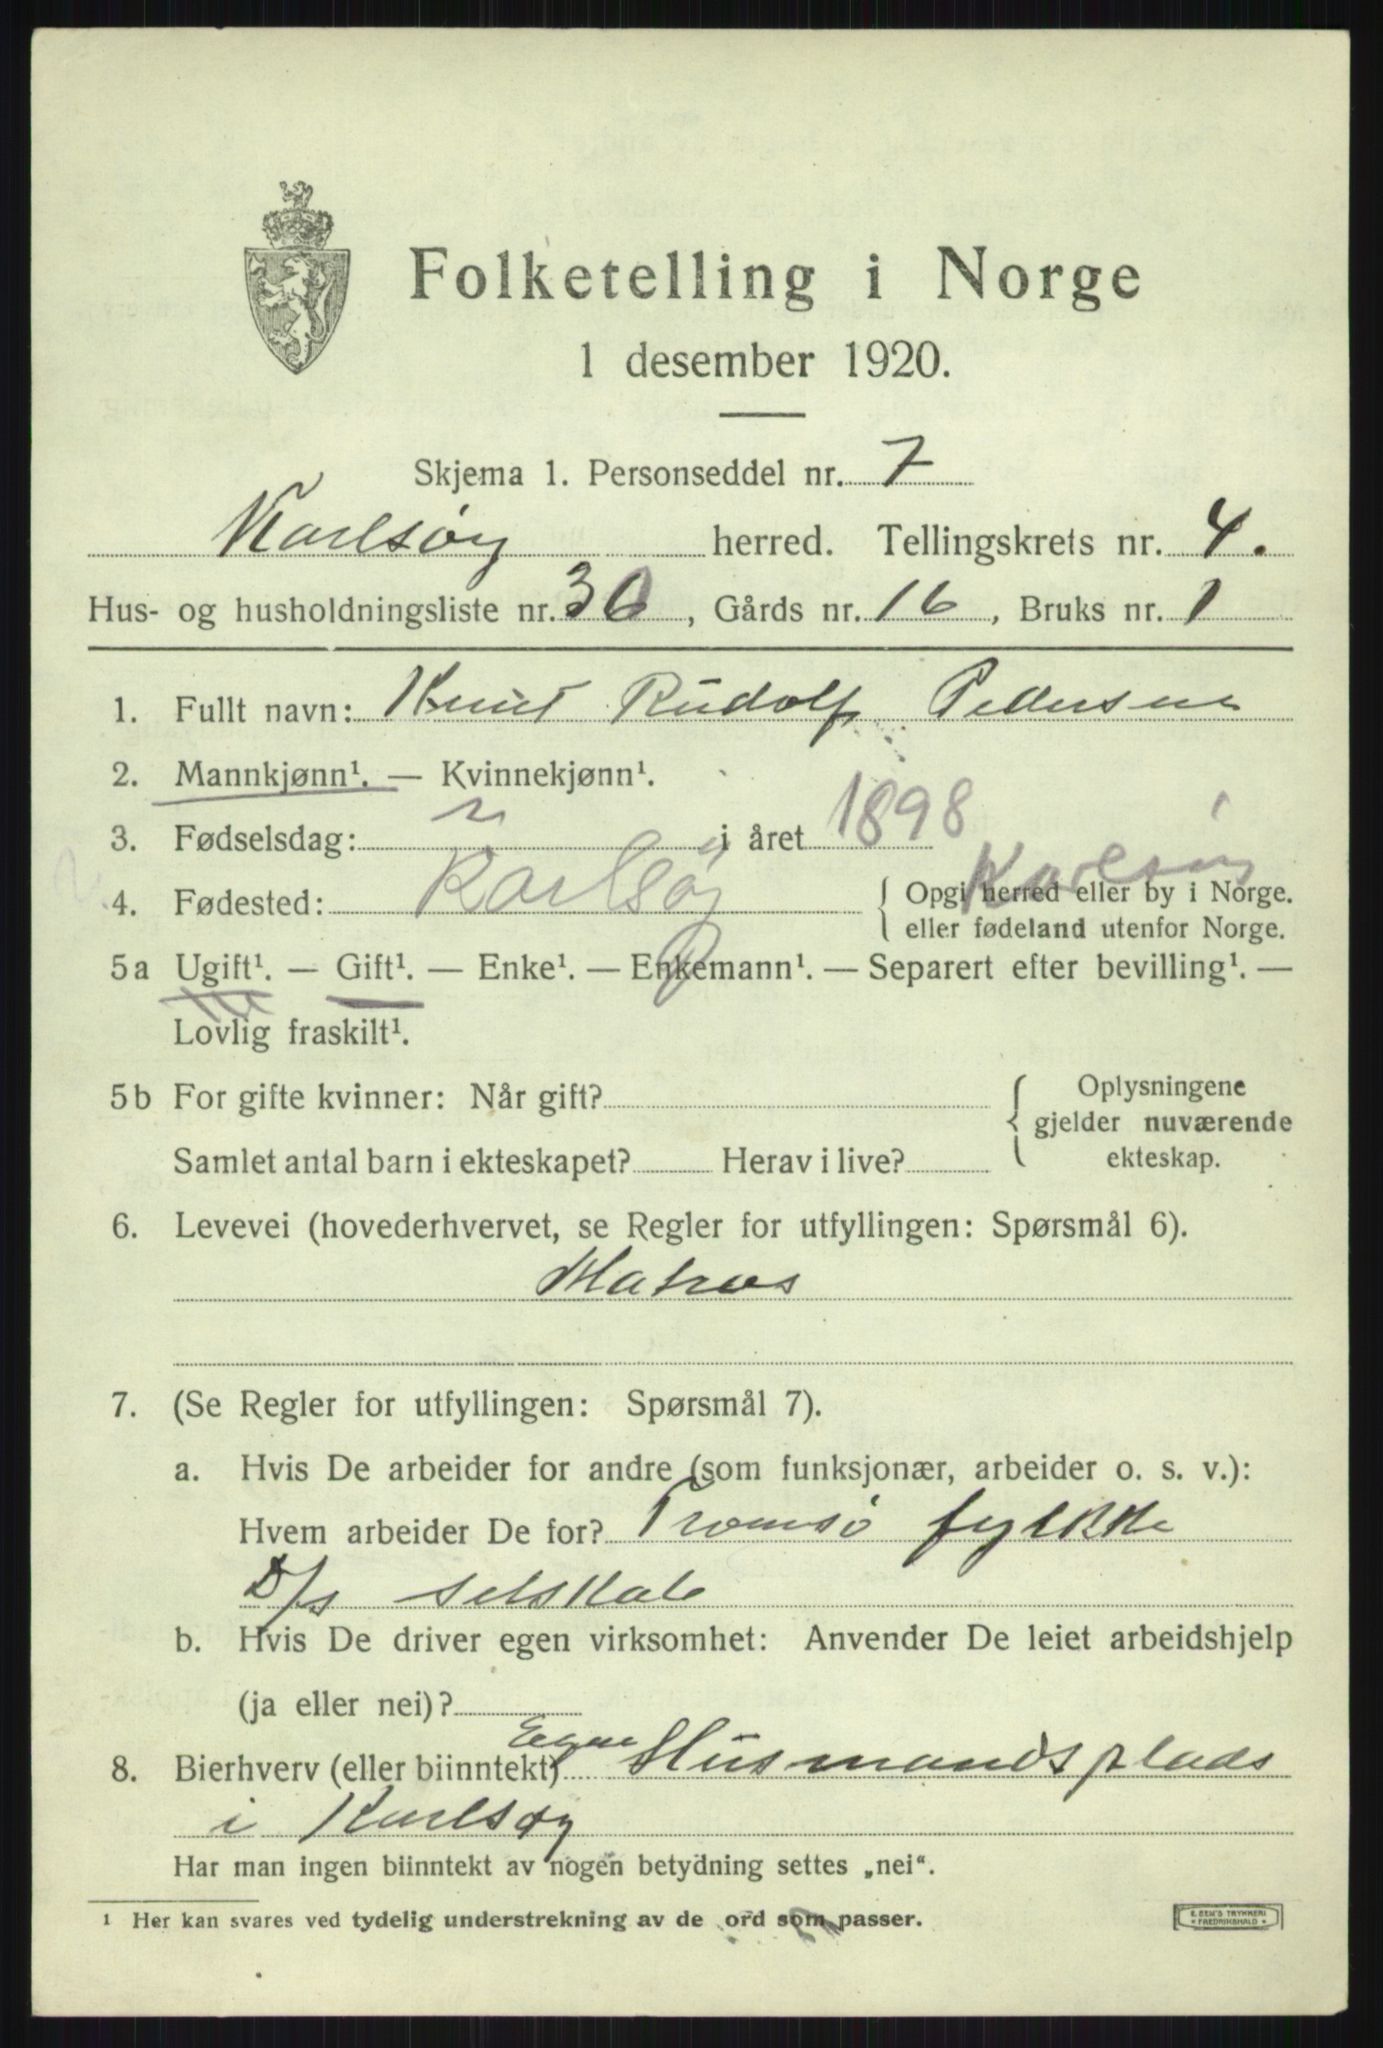 Folketelling i Norge
1 desember 1920.
Skjema 1. Personseddel nr. 7
Karlsøy herred. Tellingskrets nr. 4.
Hus- og husholdningsliste nr. 30, Gårds nr. 16, Bruks nr. 1
1. Fullt navn: Knut Rudolf Pedersen
2. Mannkjønn¹. — Kvinnekjønn¹.
3. Fødselsdag: i året 1898
4. Fødested: Karlsøy { Opgi herred eller by i Norge. Karlsøy
eller fødeland utenfor Norge.
5a Ugift¹. — Gift¹. — Enke¹. — Enkemann¹. — Separert efter bevilling¹. —
Lovlig fraskilt¹.
5b For gifte kvinner: Når gift? { Oplysningene
gjelder nuværende
Samlet antal barn i ekteskapet? Herav i live? ekteskap.
6. Levevei (hovederhvervet, se Regler for utfyllingen: Spørsmål 6).
Matros
7. (Se Regler for utfyllingen: Spørsmål 7).
a. Hvis De arbeider for andre (som funksjonær, arbeider o. s. v.):
Hvem arbeider De for? Tromsø fylkke
D/s selskab
b. Hvis De driver egen virksomhet: Anvender De leiet arbeidshjelp
(ja eller nei)?
8. Bierhverv (eller biinntekt) Husmandsplads
i Karlsøy
Har man ingen biinntekt av nogen betydning settes „nei“.
¹ Her kan svares ved tydelig understrekning av de ord som passer.
E. SEM'S TRYKKERI
FREDRIKSHALD